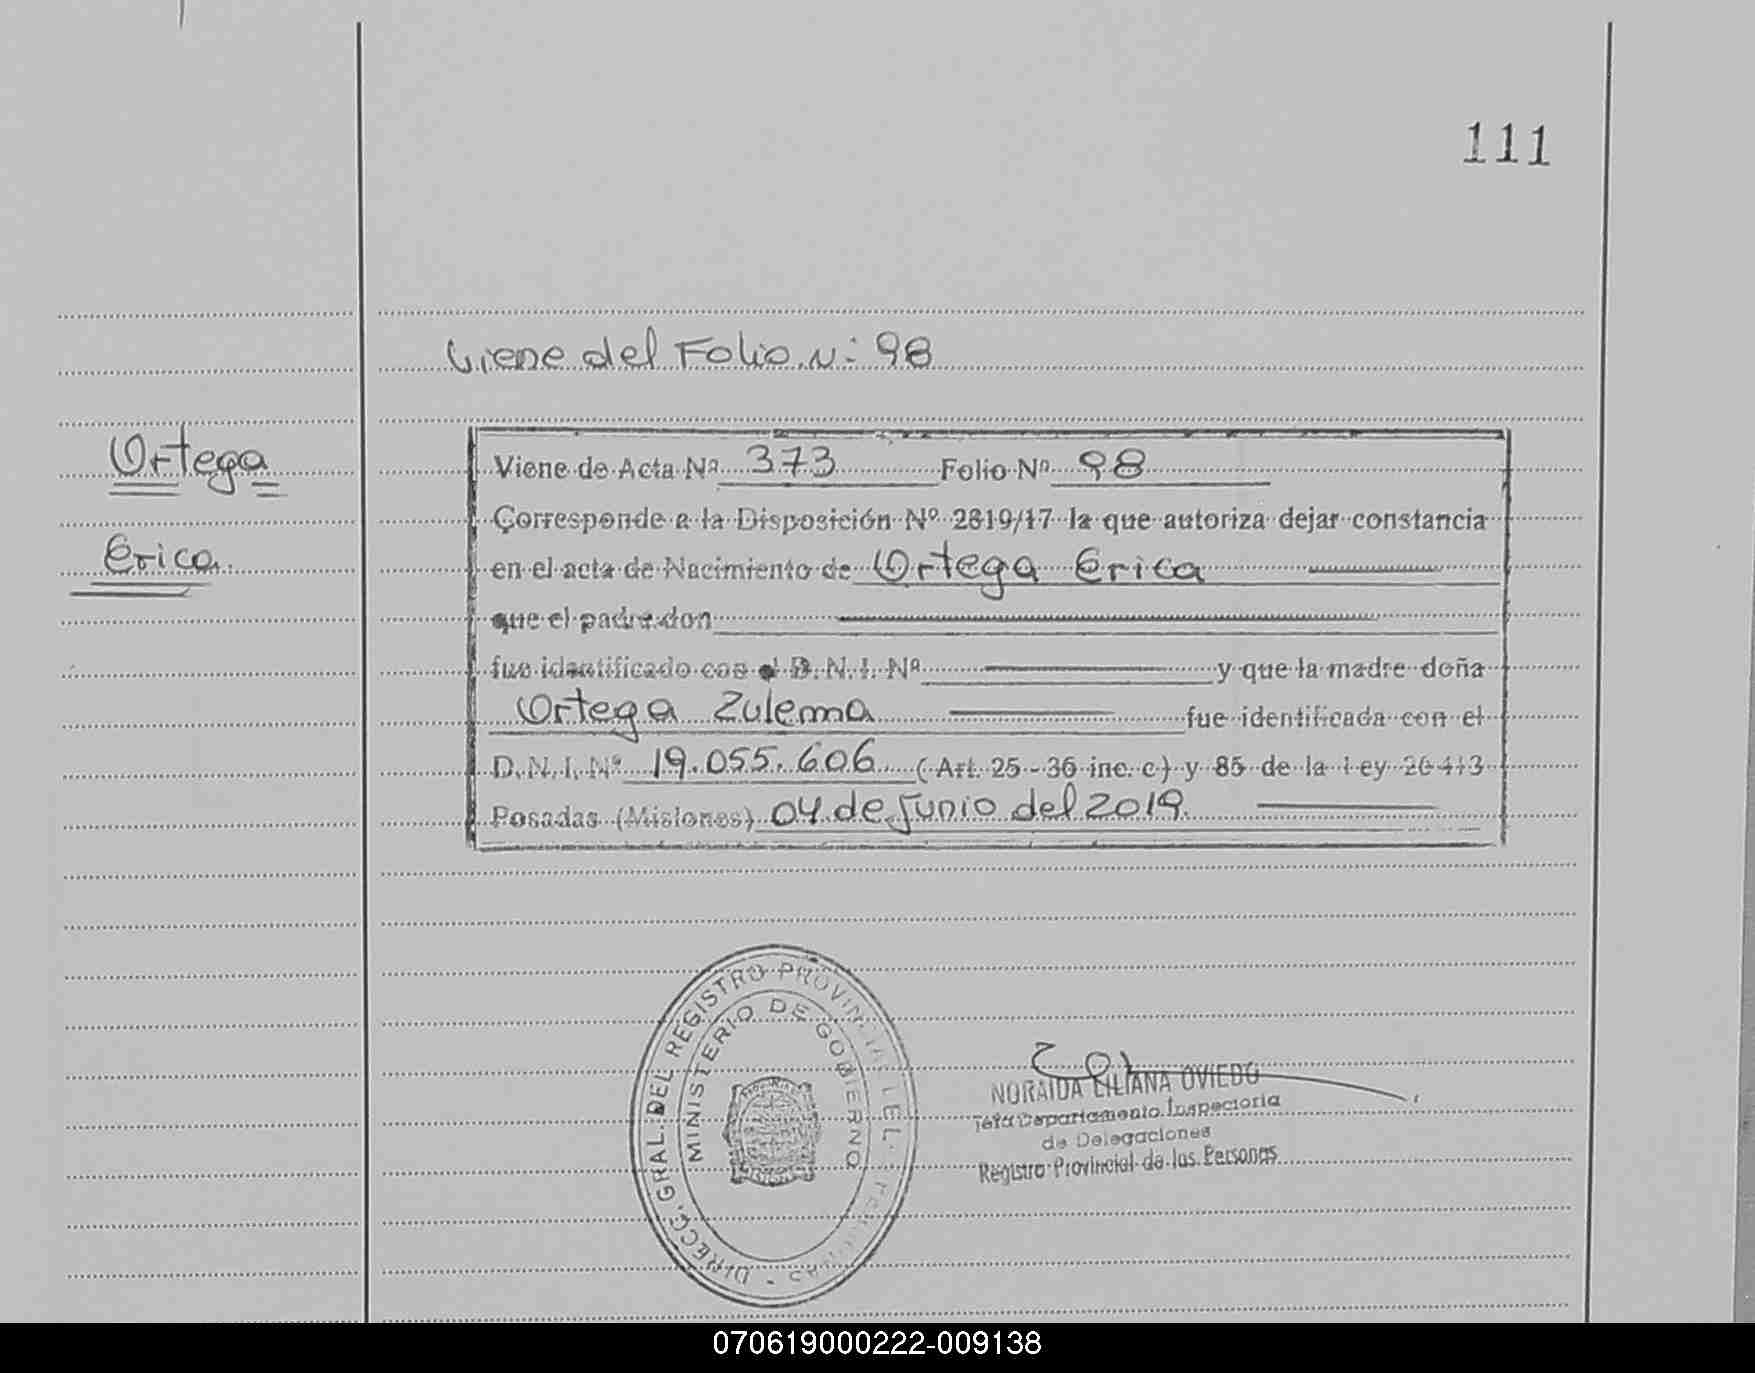 111
Viene del Folio N: 98
Ortega
Erica
Viene de Acta Nº 373 Folio Nº 98
Corresponde a la Disposición Nº 2819/17 la que autoriza dejar constancia
en el acta de Nacimiento de Ortega Erica
que el padre don
fue identificado con el D. N. I. Nº y que la madre doña
Ortega Zulema fue identificada con el
D. N. I. Nº 19.055.606 (Art. 25 - 36 inc. c) y 85 de la Ley 26413
Posadas (Misiones) 04 de Junio del 2019.
DIRECC. GRAL. DEL REGISTRO PROVINCIAL DE L
MINISTERIO DE GOBIERNO
NORAIDA LILIANA OVIEDO
Jefa Departamento Inspectoria
de Delegaciones
Registro Provincial de las Personas
070619000222-009138